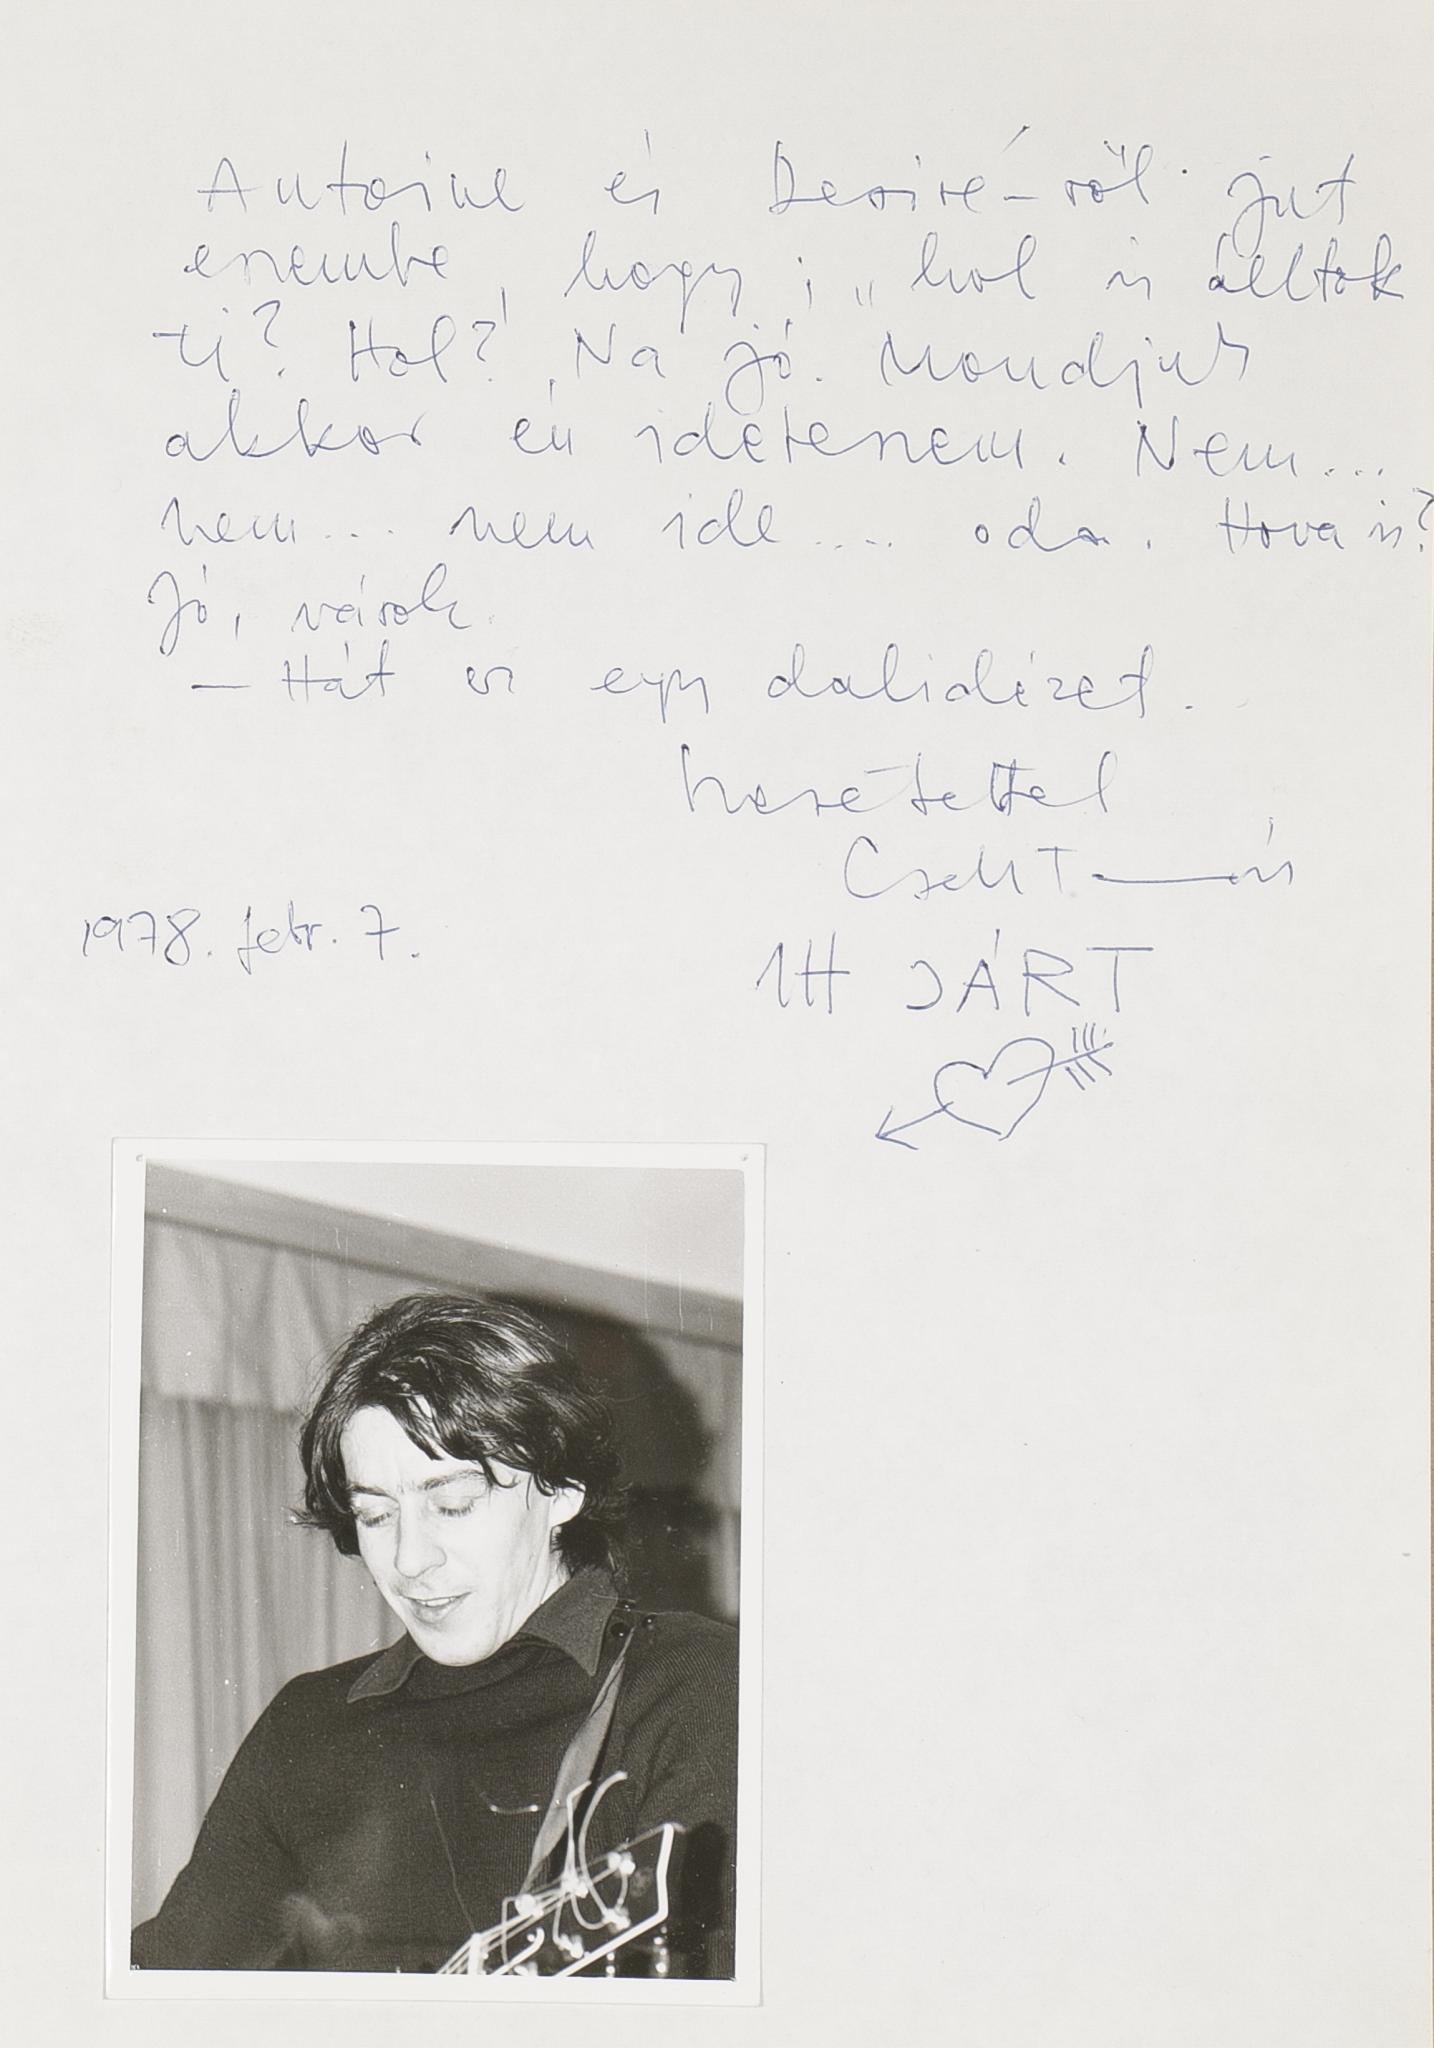 Antoine és Desiré-ről jut
eszembe, hogy; „hol is álltok
ti? Hol? Na jó. Mondjuk
akkor én ideteszem. Nem...
nem... nem ide.... oda. Hova is?
Jó, várok.
— Hát ez egy dalidézet.
Szeretettel
Cseh T——ás
1978. febr. 7.
ITT JÁRT